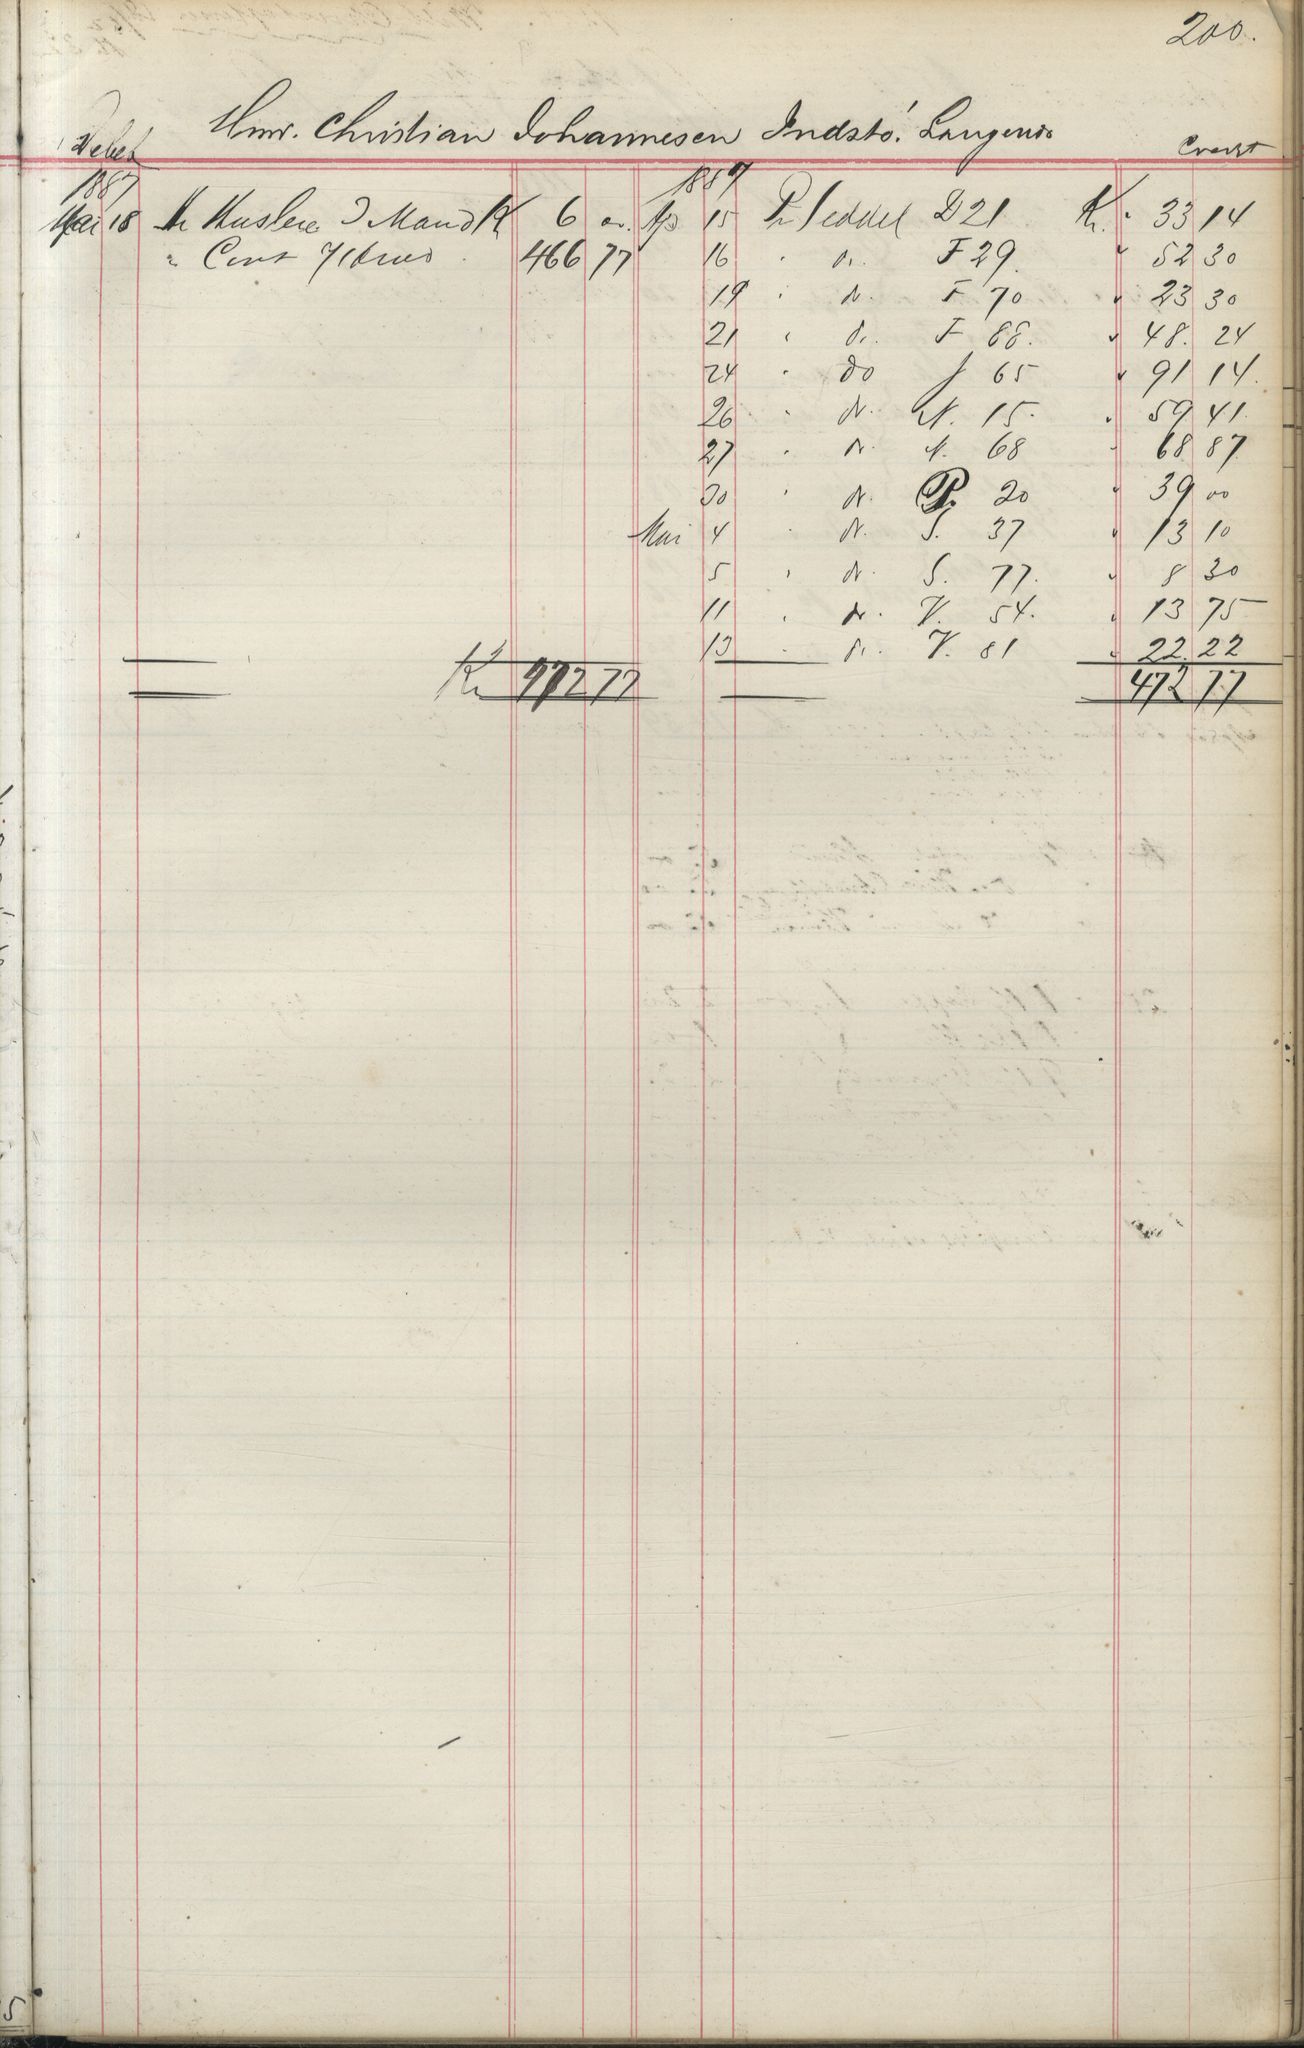 200.
Debet Hmr. Christian Johannesen Indstö. Langenæs Credit
1887 1887
Mai 18 Pr Husleie 3 Mand Kr 6 00. Apr 15 Pr Seddel D 21 Kr. " 33 14
" Cont 466 77 16 " do. F 29. " 52 30
19 " do. F 70 " 23 30
21 " do. F 88. " 48. 24
24 " do J 65 " 91 14.
26 " do. N. 15. " 59 41.
27 " do. N. 68 " 68 87
30 " do. P. 20 " 39 00
Mai 4 " do. S. 37 " 13 10
5 " do. S. 77. " 8 30
11 " do. V. 54. " 13 75
13 " do. V. 81 " 22. 22
Kr 472 77 472 77